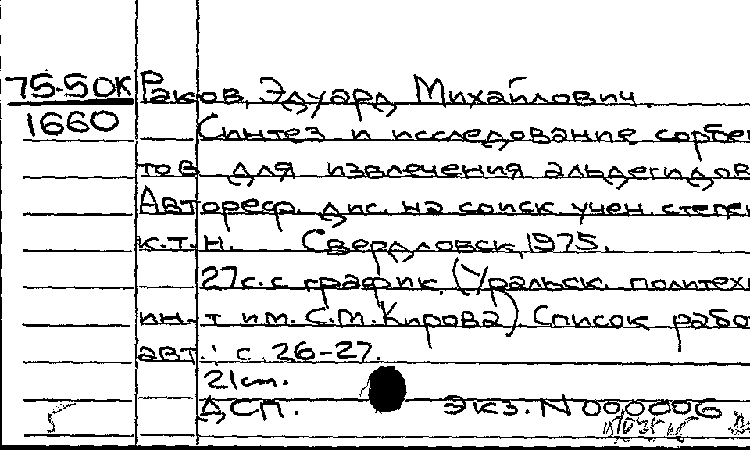 75-50К Раков, Эдуард Михайлович.
1660 Синтез и исследование сорбен
тов для извлечения альдегидов
Автореф. дис. на соиск. учен. степен
к.т.н. Свердловск, 1975.
27с. с график. (Уральск. политехн
ин-т им. С.М. Кирова). Список работ
авт.: с. 26-27.
21 cm.
ДСП. Экз. N 000006
5